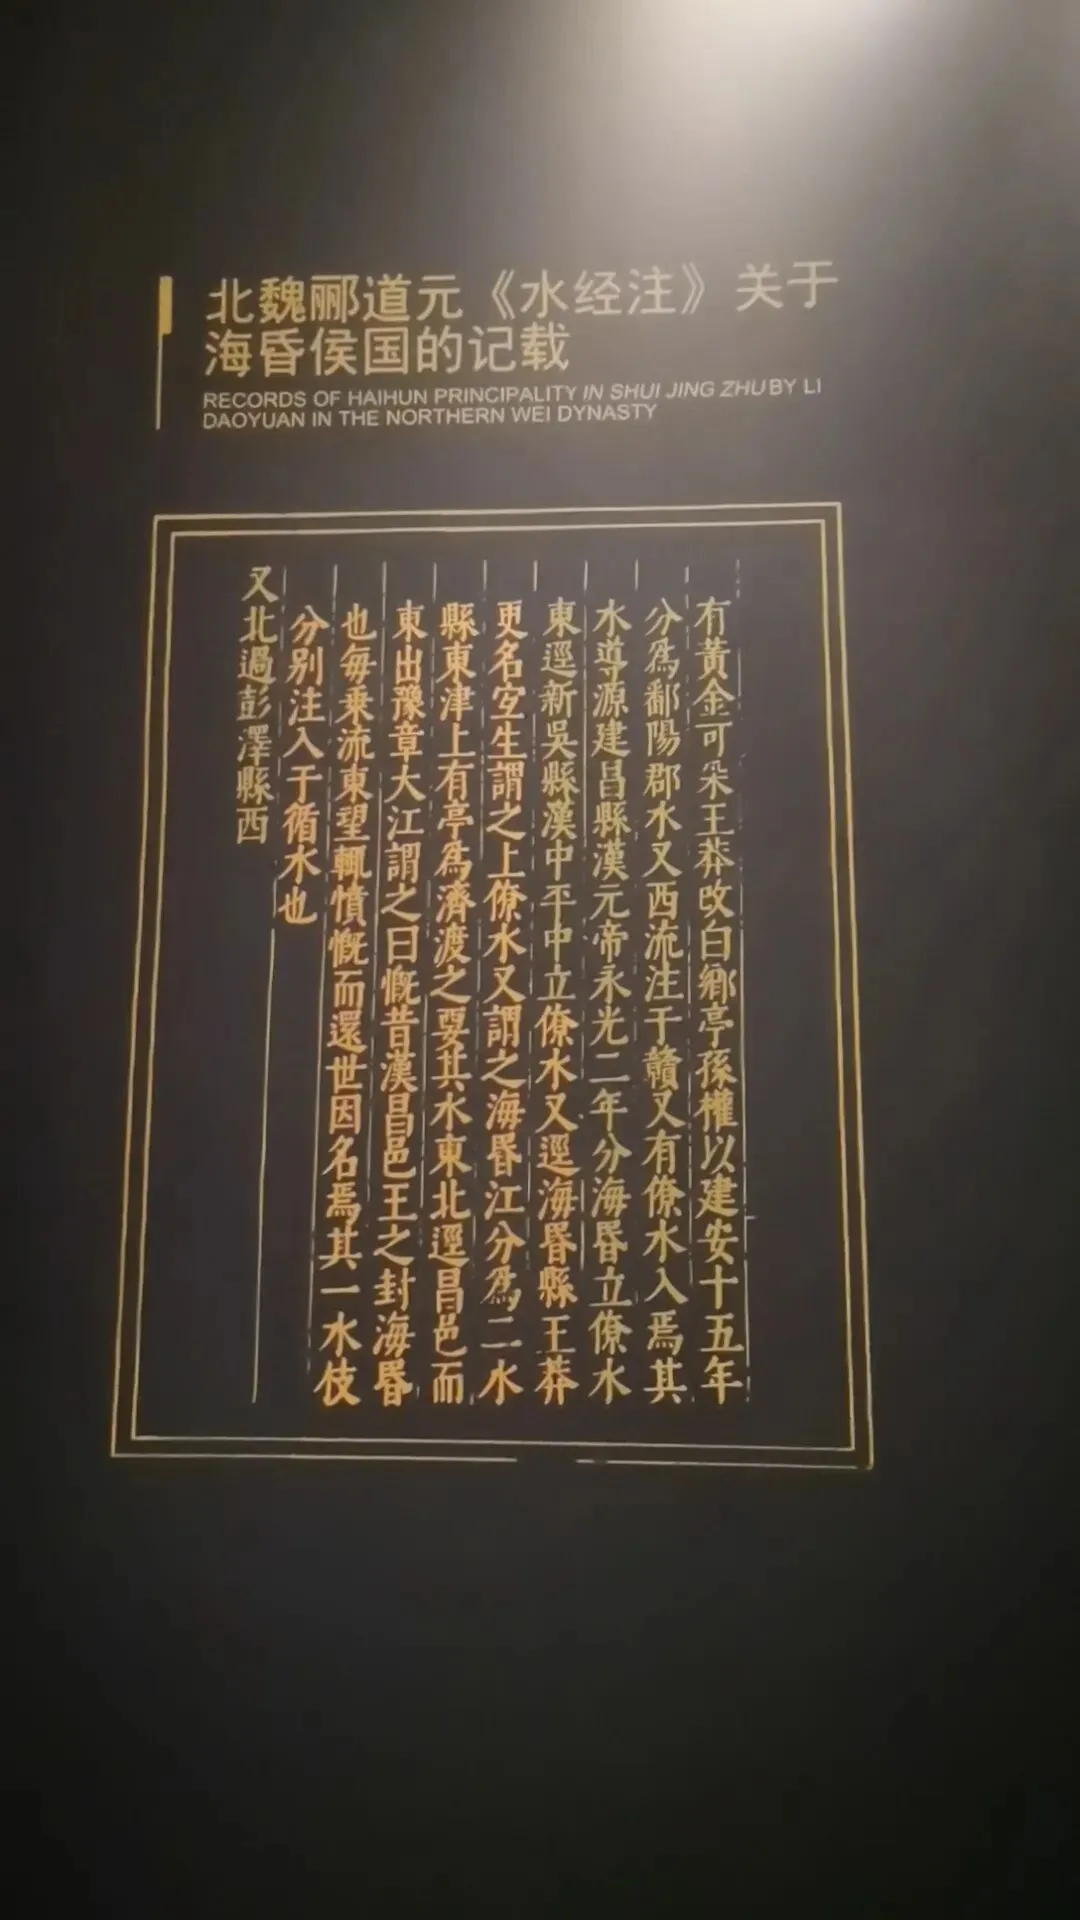 北魏郦道元《水经注》关于
海昏侯国的记载
RECORDS OF HAIHUN PRINCIPALITY IN SHUI JING ZHU BY LI
DAOYUAN IN THE NORTHERN WEI DYNASTY
有黃金可采王莽改曰鄉亭孫權以建安十五年
分爲鄱陽郡水又西流注于贛又有僚水入焉其
水導源建昌縣漢元帝永光二年分海昏立僚水
東逕新吳縣漢中平中立僚水又逕海昏縣王莽
更名宜生謂之上僚水又謂之海昏江分爲二水
縣東津上有亭爲濟渡之要其水東北逕昌邑而
東出豫章大江謂之曰慨昔漢昌邑王之封海昏
也每乗流東望輒憤慨而還世因名焉其一水伎
分别注入于循水也
又北過彭澤縣西